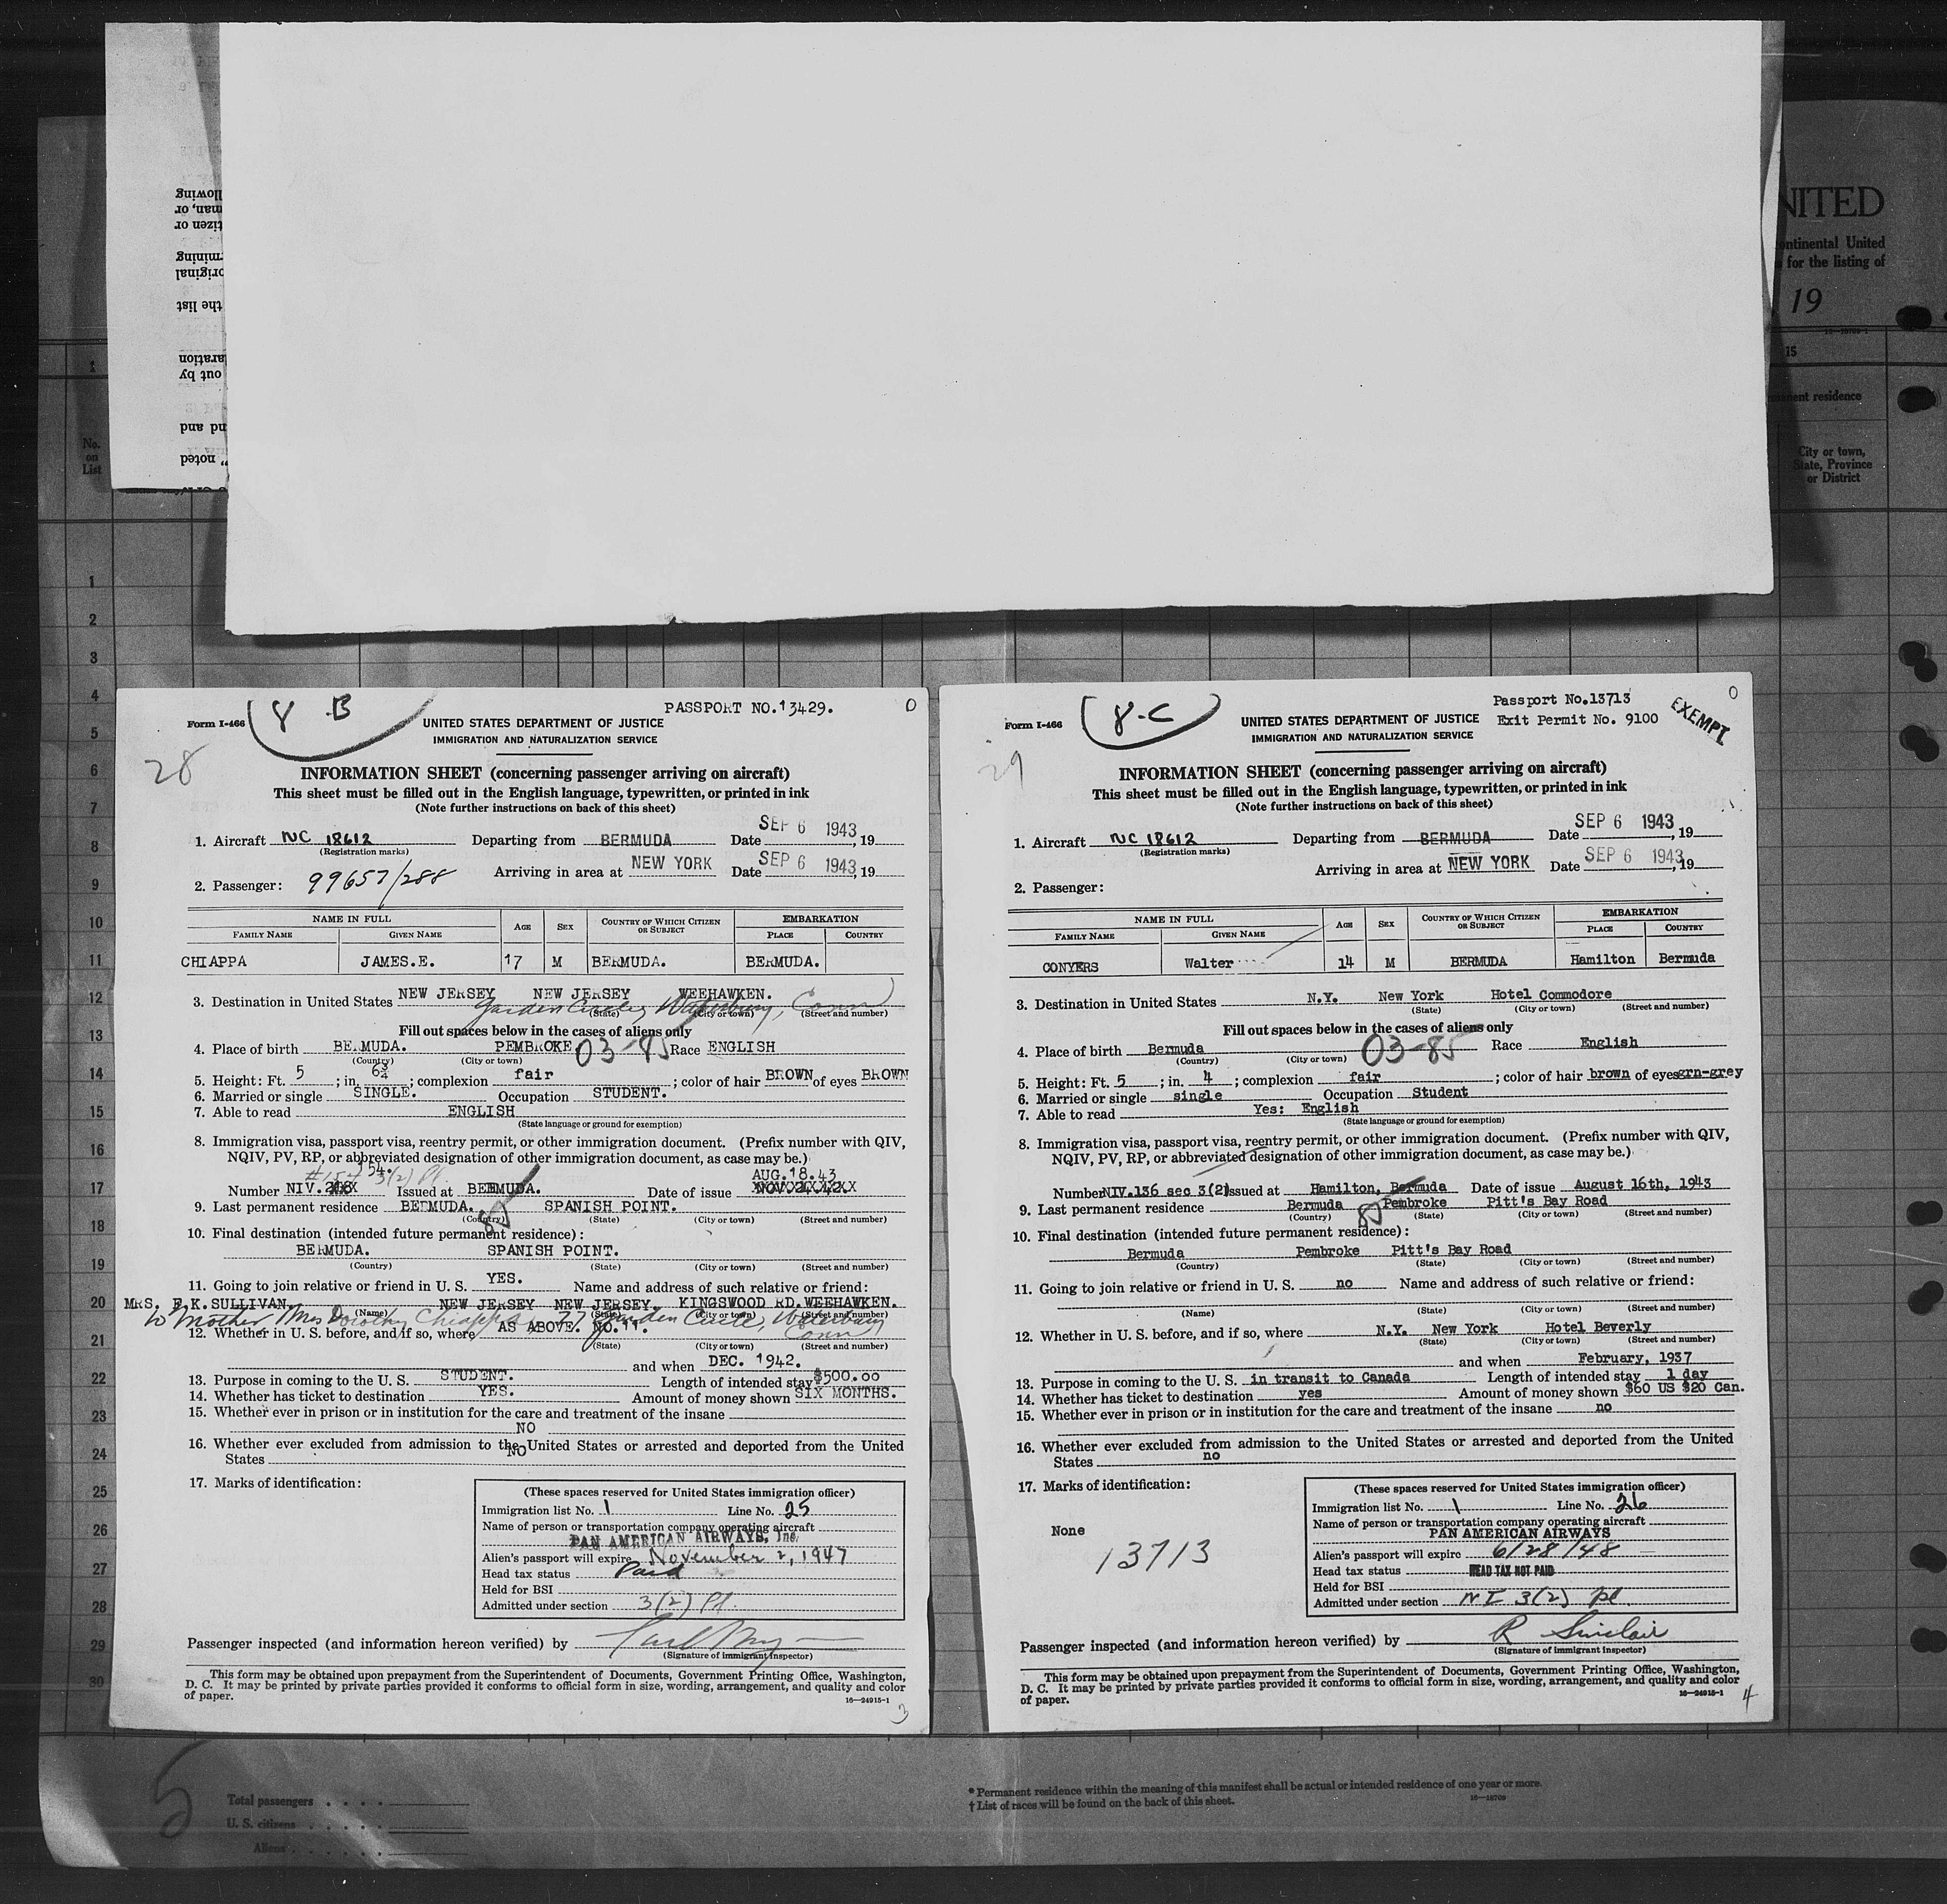 NITED
ontinental United
for the listing of
19
16—18709-1
15
ent residence
City or town,
State, Province
or District
llowing
man, or
tizen or
rmining
original
the list
laration
out by
nd and
” noted
1
No.
on
List
1
2
3
4
5
6
7
8
9
10
11
12
13
14
15
16
17
18
19
20
21
22
23
24
25
26
27
28
29
30
8 B
PASSPORT NO.13429.
0
Form I-466
UNITED STATES DEPARTMENT OF JUSTICE
IMMIGRATION AND NATURALIZATION SERVICE
28
INFORMATION SHEET (concerning passenger arriving on aircraft)
This sheet must be filled out in the English language, typewritten, or printed in ink
(Note further instructions on back of this sheet)
1. Aircraft NC 18612 Departing from BERMUDA Date SEP 6 1943, 19
(Registration marks)
Arriving in area at NEW YORK Date SEP 6 1943, 19
2. Passenger: 99657/288
NAME IN FULL AGE SEX COUNTRY OF WHICH CITIZEN OR SUBJECT EMBARKATION
FAMILY NAME GIVEN NAME PLACE COUNTRY
CHIAPPA JAMES.E. 17 M BERMUDA. BERMUDA.
3. Destination in United States NEW JERSEY NEW JERSEY WEEHAWKEN.
Garden Circle, Waterbury, Conn
(State) (City or town) (Street and number)
Fill out spaces below in the cases of aliens only
4. Place of birth BERMUDA. PEMBROKE 03-85 Race ENGLISH
(Country) (City or town)
5. Height: Ft. 5 ; in. 6¾ ; complexion fair ; color of hair BROWN of eyes BROWN
6. Married or single SINGLE. Occupation STUDENT.
7. Able to read ENGLISH
(State language or ground for exemption)
8. Immigration visa, passport visa, reentry permit, or other immigration document. (Prefix number with QIV,
NQIV, PV, RP, or abbreviated designation of other immigration document, as case may be.)
154. 3(2) Pl. AUG.18.43
Number NIV. Issued at BERMUDA. Date of issue
9. Last permanent residence BERMUDA. 85 SPANISH POINT.
(Country) (State) (City or town) (Street and number)
10. Final destination (intended future permanent residence):
BERMUDA. SPANISH POINT.
(Country) (State) (City or town) (Street and number)
11. Going to join relative or friend in U. S. YES. Name and address of such relative or friend:
MRS. F.K.SULLIVAN. NEW JERSEY NEW JERSEY. KINGSWOOD RD.WEEHAWKEN.
(Name) (State) (City or town) (Street and number)
to Mother Mrs Dorothy Chiappa 77 Garden Circle, Waterbury Conn
12. Whether in U. S. before, and if so, where AS ABOVE. NO.11.
(State) (City or town) (Street and number)
and when DEC. 1942.
13. Purpose in coming to the U. S. STUDENT. Length of intended stay $500.00
14. Whether has ticket to destination YES. Amount of money shown SIX MONTHS.
15. Whether ever in prison or in institution for the care and treatment of the insane
NO
16. Whether ever excluded from admission to the United States or arrested and deported from the United
States NO
17. Marks of identification:
(These spaces reserved for United States immigration officer)
Immigration list No. 1 Line No. 25
Name of person or transportation company operating aircraft
PAN AMERICAN AIRWAYS, Inc.
Alien's passport will expire November 2, 1947
Head tax status Paid
Held for BSI
Admitted under section 3(2) Pl.
Passenger inspected (and information hereon verified) by
(Signature of immigrant inspector)
This form may be obtained upon prepayment from the Superintendent of Documents, Government Printing Office, Washington,
D. C. It may be printed by private parties provided it conforms to official form in size, wording, arrangement, and quality and color
of paper.
16—24915-1
3
8-C
Passport No.13713
Exit Permit No. 9100
EXEMPT
0
Form I-466
UNITED STATES DEPARTMENT OF JUSTICE
IMMIGRATION AND NATURALIZATION SERVICE
29
INFORMATION SHEET (concerning passenger arriving on aircraft)
This sheet must be filled out in the English language, typewritten, or printed in ink
(Note further instructions on back of this sheet)
1. Aircraft NC 18612 Departing from BERMUDA Date SEP 6 1943, 19
(Registration marks)
Arriving in area at NEW YORK Date SEP 6 1943, 19
2. Passenger:
NAME IN FULL AGE SEX COUNTRY OF WHICH CITIZEN OR SUBJECT EMBARKATION
FAMILY NAME GIVEN NAME PLACE COUNTRY
CONYERS Walter 14 M BERMUDA Hamilton Bermuda
3. Destination in United States N.Y. New York Hotel Commodore
(State) (City or town) (Street and number)
Fill out spaces below in the cases of aliens only
4. Place of birth Bermuda 03-85 Race English
(Country) (City or town)
5. Height: Ft. 5 ; in. 4 ; complexion fair ; color of hair brown of eyes grn-grey
6. Married or single single Occupation Student
7. Able to read Yes: English
(State language or ground for exemption)
8. Immigration visa, passport visa, reentry permit, or other immigration document. (Prefix number with QIV,
NQIV, PV, RP, or abbreviated designation of other immigration document, as case may be.)
Number NIV.136 sec 3(2) Issued at Hamilton, Bermuda Date of issue August 16th, 1943
9. Last permanent residence Bermuda 85 Pembroke Pitt's Bay Road
(Country) (State) (City or town) (Street and number)
10. Final destination (intended future permanent residence):
Bermuda Pembroke Pitt's Bay Road
(Country) (State) (City or town) (Street and number)
11. Going to join relative or friend in U. S. no Name and address of such relative or friend:
(Name) (State) (City or town) (Street and number)
12. Whether in U. S. before, and if so, where N.Y. New York Hotel Beverly
(State) (City or town) (Street and number)
and when February, 1937
13. Purpose in coming to the U. S. in transit to Canada Length of intended stay 1 day
14. Whether has ticket to destination yes Amount of money shown $60 US $20 Can.
15. Whether ever in prison or in institution for the care and treatment of the insane no
16. Whether ever excluded from admission to the United States or arrested and deported from the United
States no
17. Marks of identification:
None
13713
(These spaces reserved for United States immigration officer)
Immigration list No. 1 Line No. 26
Name of person or transportation company operating aircraft
PAN AMERICAN AIRWAYS
Alien's passport will expire 6/28/48
Head tax status HEAD TAX NOT PAID
Held for BSI
Admitted under section NI 3(2) pl.
Passenger inspected (and information hereon verified) by R Sinclair
(Signature of immigrant inspector)
This form may be obtained upon prepayment from the Superintendent of Documents, Government Printing Office, Washington,
D. C. It may be printed by private parties provided it conforms to official form in size, wording, arrangement, and quality and color
of paper.
16—24915-1
4
5
Total passengers . . . .
U. S. citizens . . . . .
Aliens . . . . . .
* Permanent residence within the meaning of this manifest shall be actual or intended residence of one year or more.
† List of races will be found on the back of this sheet.
16—18709